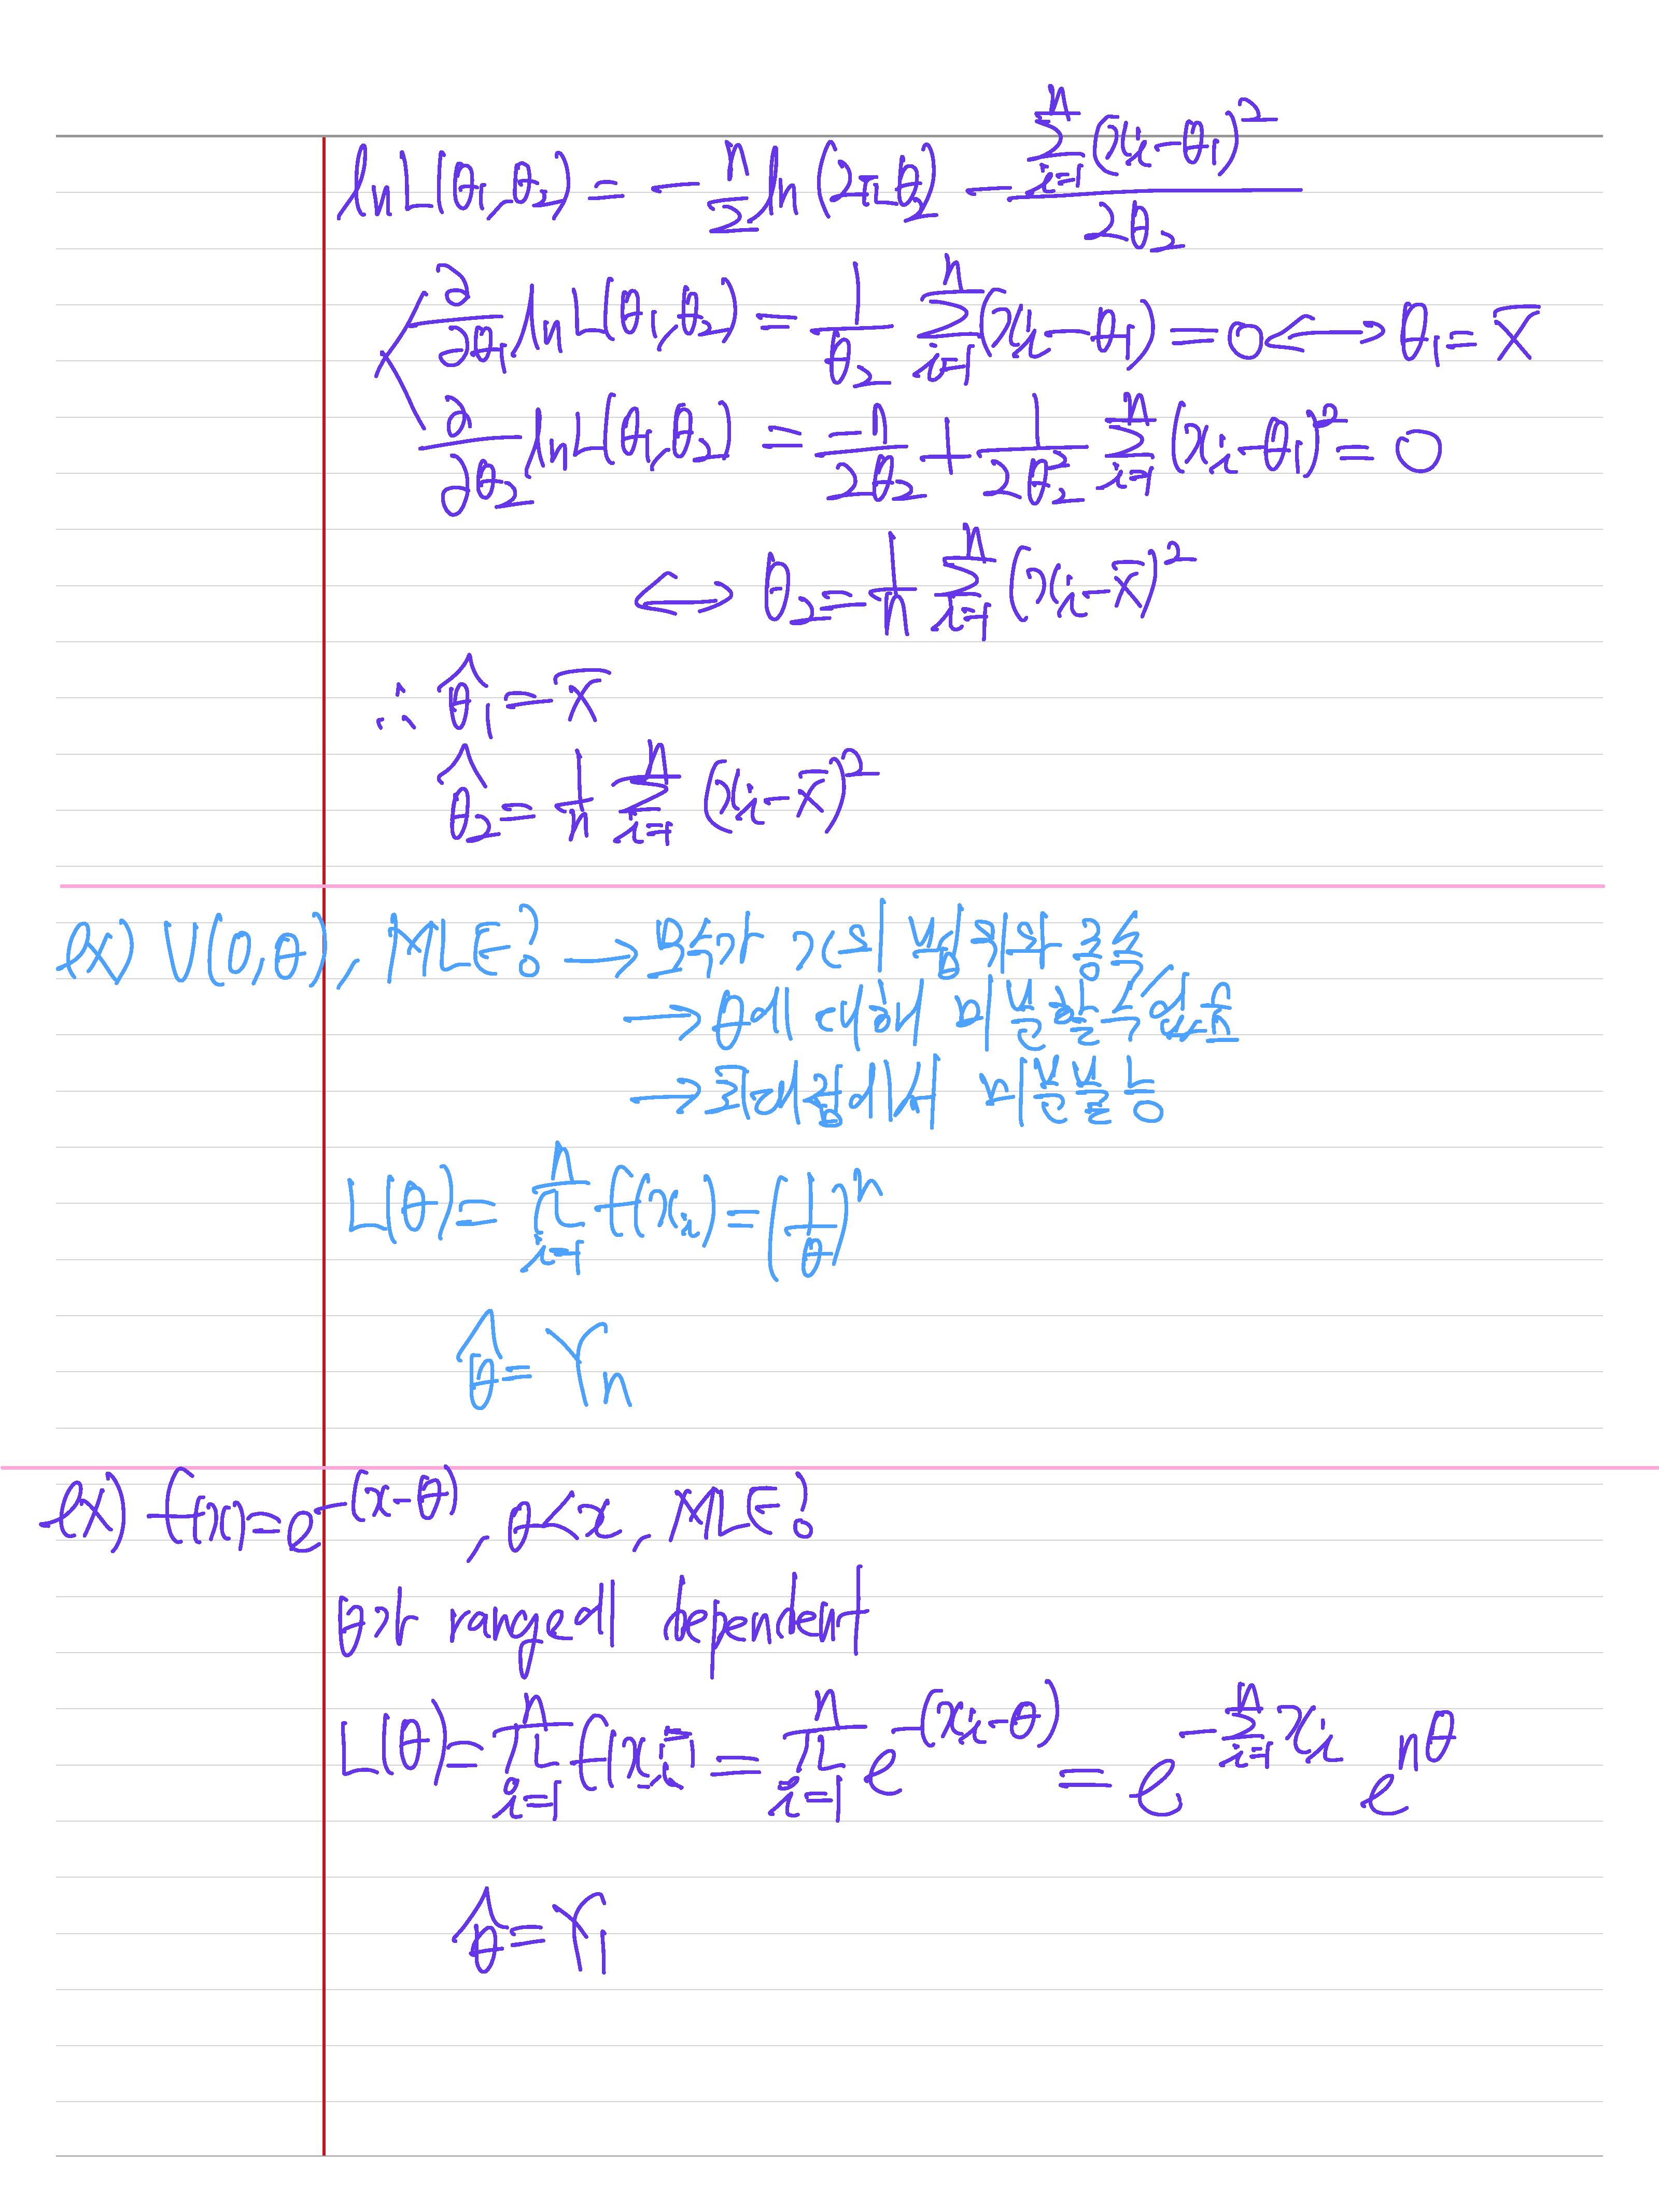 lnL(θ₁,θ₂) = -n/2 ln(2πθ₂) - Σⁿᵢ₌₁(xᵢ-θ₁)²/2θ₂
∂/∂θ₁ lnL(θ₁,θ₂) = 1/θ₂ Σⁿᵢ₌₁(xᵢ-θ₁) = 0 ⟷ θ₁ = x̄
∂/∂θ₂ lnL(θ₁,θ₂) = -n/2θ₂ + 1/2θ₂² Σⁿᵢ₌₁(xᵢ-θ₁)² = 0
⟷ θ₂ = 1/n Σⁿᵢ₌₁(xᵢ-x̄)²
∴ θ̂₁ = x̄
θ̂₂ = 1/n Σⁿᵢ₌₁(xᵢ-x̄)²
ex) U(0,θ), MLE? → 모수가 x의 범위와 종속
→ θ에 대해 미분할 수 있음
→ 최대점에서 미분불능
L(θ) = πⁿᵢ₌₁ f(xᵢ) = (1/θ)ⁿ
θ̂ = Yₙ
ex) f(x) = e^-(x-θ), θ<x, MLE?
θ가 range에 dependent
L(θ) = πⁿᵢ₌₁ f(xᵢ) = πⁿᵢ₌₁ e^-(xᵢ-θ) = e^-Σⁿᵢ₌₁xᵢ e^nθ
θ̂ = Y₁